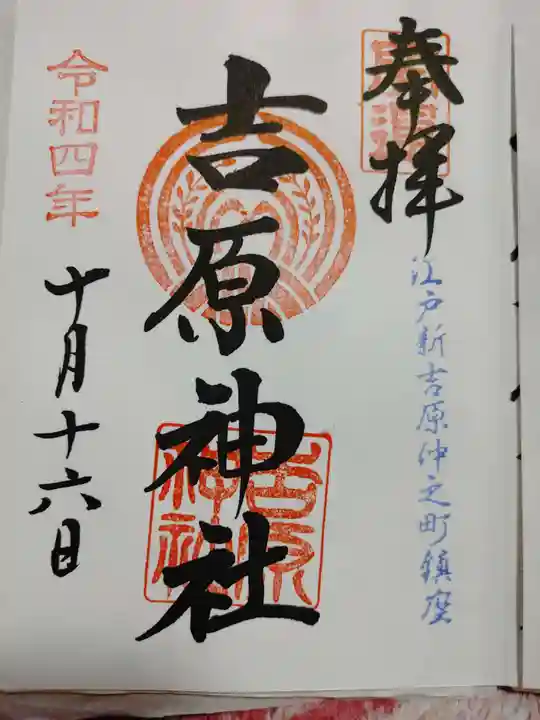 奉拝
江戸新吉原仲之町鎮座
吉原神社
吉原神社
令和四年
十月十六日